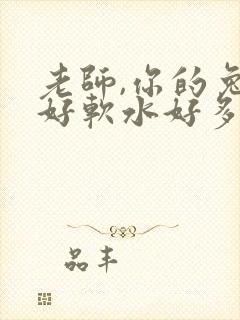 老師,你的兔
好軟水好多
品丰